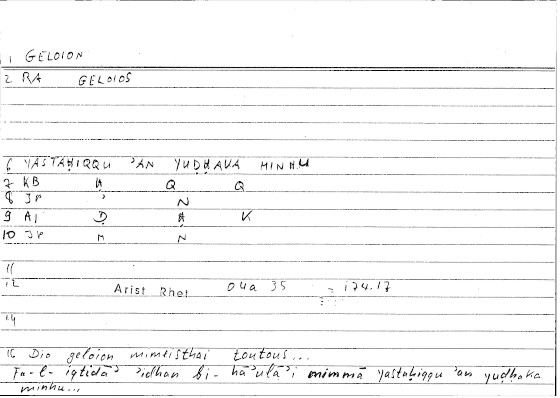 1 GELOION
2 RA GELOIOS
6 YASTAḤIQQU ʾAN YUḌḤAKA MINHU
7 KB Ḥ Q Q
8 JP ʾ N
9 AJ Ḍ Ḥ K
10 JP M N
11
12 Arist Rhet 04a 35 174.17
14
16 Dio geloion mimeisthai toutous...
Fa-l- iqtidāʾ ʾidhan bi- hāʾulāʾi mimmā yastaḥiqqu ʾan yuḍḥaka
minhu...